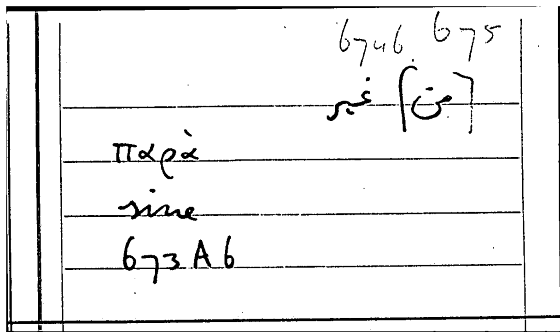 674b. 675
[من] غير
παρὰ
sine
673 A 6